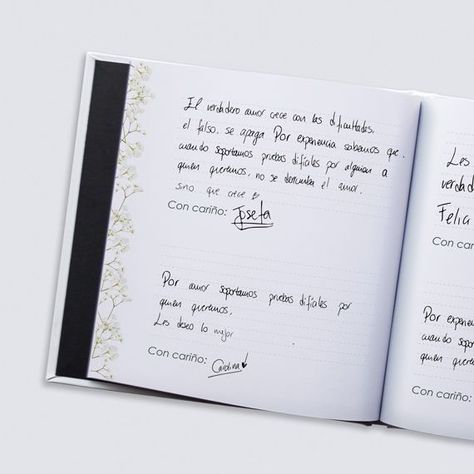 El verdadero amor crece con las dificultades,
el falso, se apaga. Por experiencia sabemos que,
cuando soportamos pruebas difíciles por alguien a
quien queremos, no se derrumba el amor,
sino que crece
Con cariño: Josefa
Por amor soportamos pruebas difíciles por
quien queremos.
Les deseo lo mejor
Con cariño: Carolina
Les
verdadero
Felia
Con car
Por experien
cuando sopor
quien querem
Con cariño: